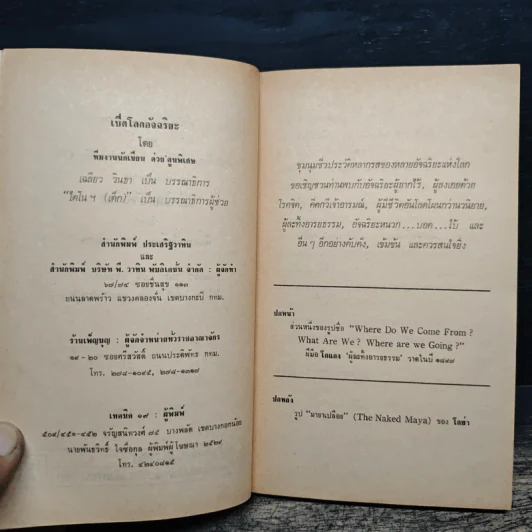 เปิดโลกอัจฉริยะ
โดย
ทีมงานนักเขียน ต่วย'ตูนพิเศษ
เฉลียว วินธา เป็น บรรณาธิการ
"โตโน่ฯ (เด็ก)" เป็น บรรณาธิการผู้ช่วย
สำนักพิมพ์ ประเสริฐวาทิน
และ
สำนักพิมพ์ บริษัท พี. วาทิน พับลิเคชั่น จำกัด : ผู้จัดทำ
๖๗/๗๔ ซอยชื่นสุข ๑๑๓
ถนนลาดพร้าว แขวงคลองจั่น เขตบางกะปิ กทม.
ร้านเพ็ญบุญ : ผู้จัดจำหน่ายทั่วราชอาณาจักร
๑๙-๒๐ ซอยศรีสวัสดิ์ ถนนประดิพัทธ์ กทม.
โทร.
เทคนิค ๑๙ : ผู้พิมพ์
๕๐๙/๔๕๑-๔๕๒ จรัญสนิทวงศ์ ๗๕ บางพลัด เขตบางกอกน้อย
นายพันธวิทย์ ใจซื่อกุล ผู้พิมพ์ผู้โฆษณา ๒๕๒๙
โทร. ๔๒๔๐๘๑๕
ชุมนุมชีวประวัติหลากรสของหลายอัจฉริยะแห่งโลก
ขอเชิญชวนท่านพบกับอัจฉริยะผู้ยากไร้, ผู้ลงเอยด้วย
โรคจิต, คีตกวีเจ้าอารมณ์, ผู้มีชีวิตอันโลดโผนกว่านวนิยาย,
ผู้ละทิ้งอารยธรรม, อัจฉริยะหนวก...บอด...ใบ้ และ
อื่น ๆ อีกอย่างคับคั่ง, เข้มข้น และควรสนใจยิ่ง
ปกหน้า
ส่วนหนึ่งของรูปชื่อ "Where Do We Come From?
What Are We? Where are we Going?"
ฝีมือ โกแกง 'ผู้ละทิ้งอารยธรรม' วาดในปี ๑๘๙๗
ปกหลัง
รูป "มายาเปลือย" (The Naked Maya) ของ โกย่า